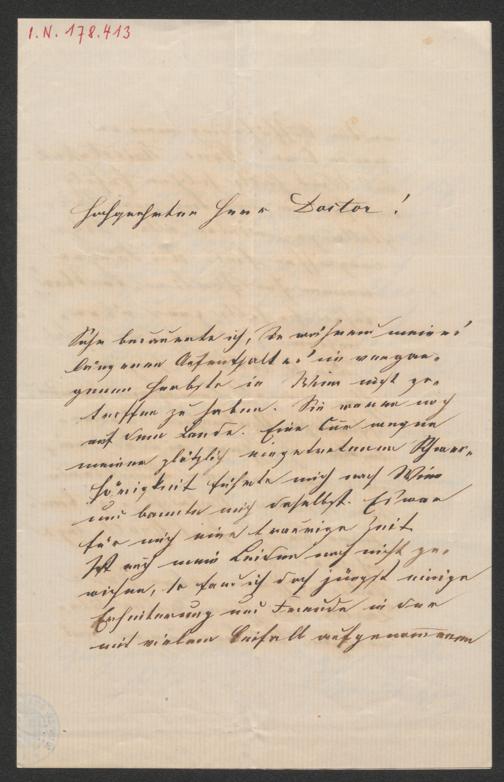 I.N. 178.413
Hochgeehrter Herr Doctor!
Sehr bedauerte ich, Sie während meines
längeren Aufenthaltes im vergan-
genen Herbste in Wien nicht ge-
troffen zu haben. Sie waren noch
auf dem Lande. Eine Cur wegen
meiner plötzlich eingetretenen Schwer-
hörigkeit führte mich nach Wien
und bannte mich daselbst. Es war
für mich eine traurige Zeit
Ist auch mein Leiden noch nicht ge-
wichen, so fand ich doch jüngst einige
Erheiterung und Freude in der
mit vielem Beifall aufgenommenen